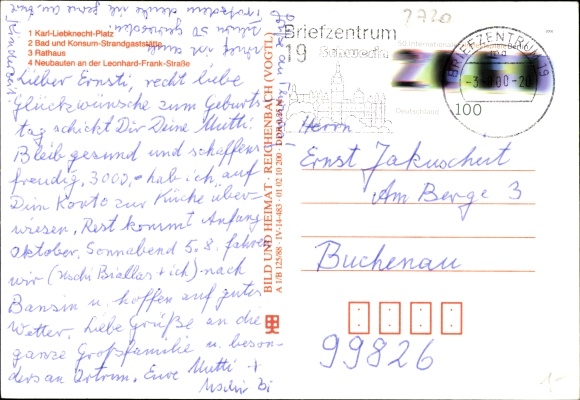 1 Karl-Liebknecht-Platz
2 Bad und Konsum-Strandgaststätte
3 Rathaus
4 Neubauten an der Leonhard-Frank-Straße
Lieber Ernsti, recht liebe
Glückwünsche zum Geburts
tag schickt Dir Deine Mutti.
Bleib gesund und schaffens
freudig, 3000,- hab ich auf
Dein Konto zur Küche über-
wiesen, Rest kommt Anfang
Oktober. Sonnabend 5.8. fahren
wir (Uschi Biallas + ich) nach
Bansin u. hoffen auf gutes
Wetter. Liebe Grüße an die
ganze Großfamilie u. beson-
ders an Ortrun. Eure Mutti +
Uschi Bi
BILD UND HEIMAT · REICHENBACH (VOGTL)
A 1/B 125/88 IV-14-483 01 02 10 200
7720
Briefzentrum
19
Schwerin
Deutschland
100
BRIEFZENTRUM 19
Herrn
Ernst Jakuscheit
Am Berge 3
Buchenau
99826
1-